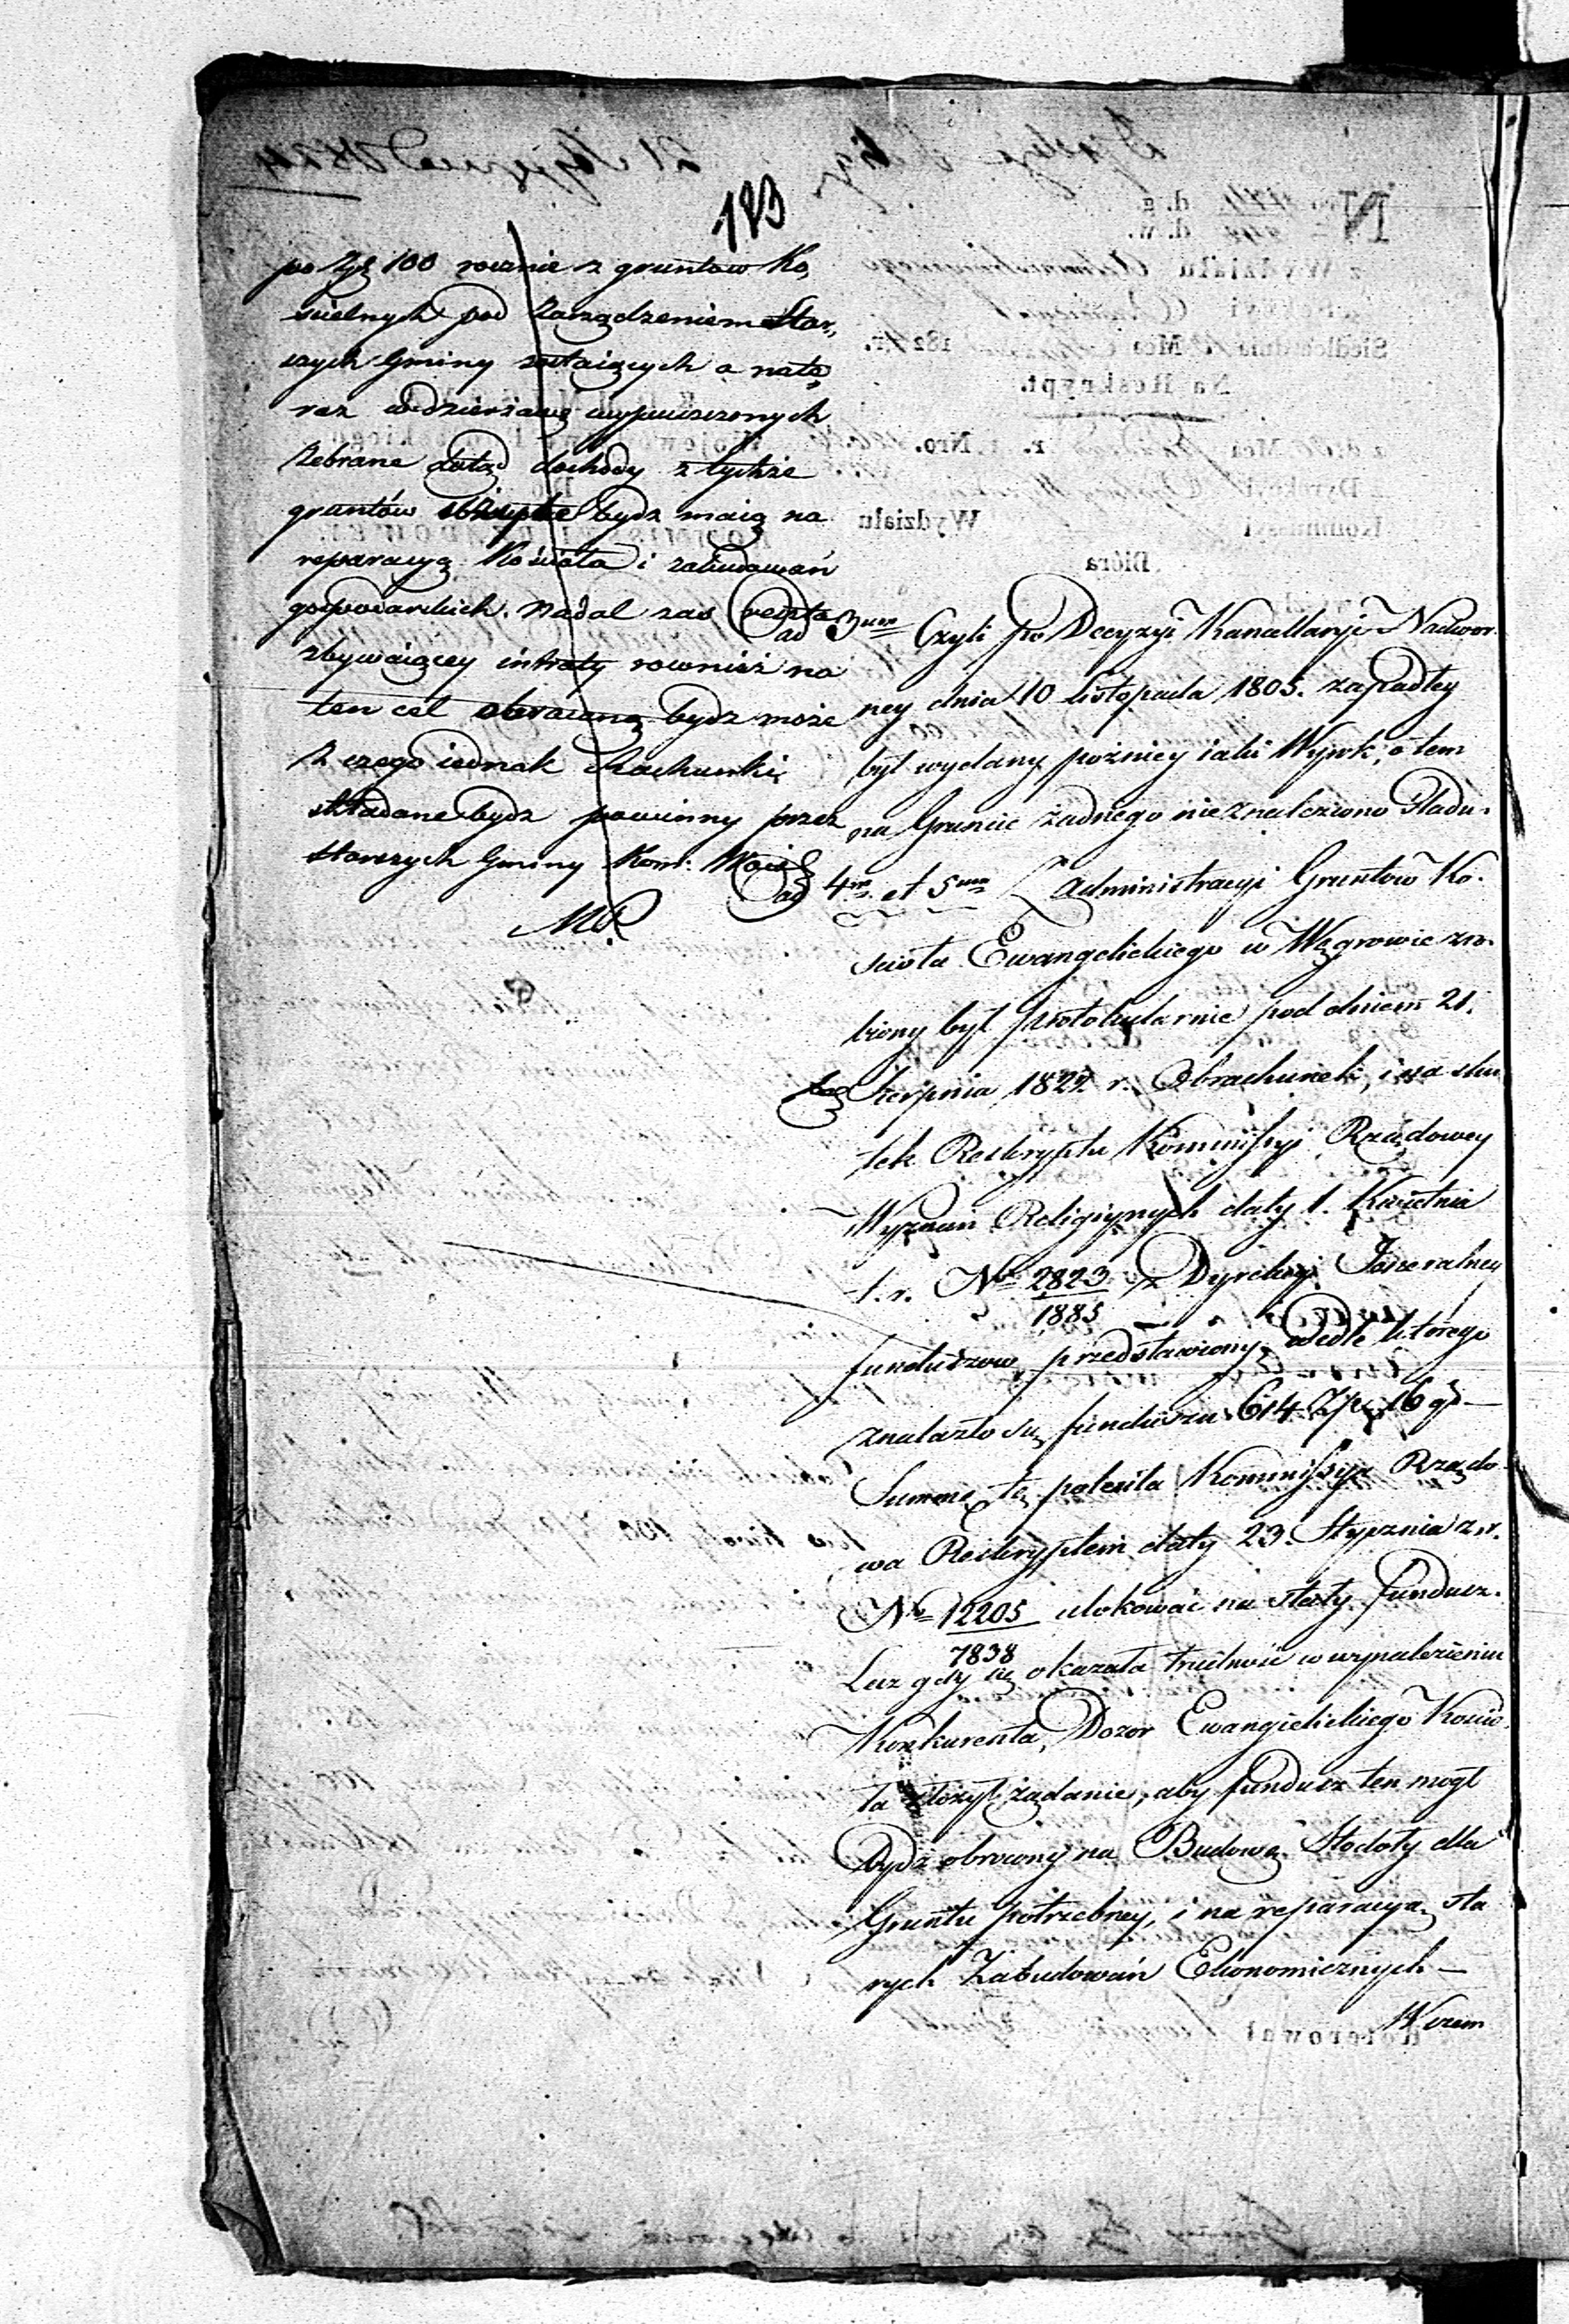 183
po Złp 100 rocznie z gruntow Ko,
scielnych pod Zarządzeniem Star,
szych Gminy zostaiących a nate,
raz w dzierżawę wypuszczonych
Zebrane dotąd dochody z tychże
gruntów bydz maią na
reparacyą Kościoła i zabudowań
gospodarskich. Nadal zaś reszta
zbywaiącey intraty rownież na
ten cel obracaną bydz może
z czego iednak Rachunki
składane bydz powinny przez
starszych Gminy Kom: Woie
ad 3um Czyli po Decyzyi Kancellaryi Nadwor-
ney dnia 10 Listopada 1805. zapadłey
był wydany poźniey iaki Wyrok, o tem
na Gruncie żadnego nie znaleziono Sladu.
ad 4m et 5um Z administracyi Gruntow Ko-
scioła Ewangelickiego w Węgrowie zro-
biony był protokularnie pod dniem 21.
Sierpnia 1824. r. Obrachunek, i na sku
tek Reskryptu Kommissyi Rządowey
Wyznań Religiynych daty 1. Kwietnia
t. r. No 2823/1885 z Dyrekcyi Jeneralney
funduszow przedstawiony, wedle ktorego
znalazło się funduszu 614 Zp. 16 gr —
Summę tę poleciła Kommissya Rządo-
wa Reskryptem daty 23. Stycznia z. r.
No 12205/7838 ulokować na stały fundusz.
Lecz gdy się okazała trudność w wynalezieniu
Konkurenta, Dozor Ewangielickiego Kościo
ła złożył żądanie, aby fundusz ten mogł
bydź obrocony na Budowę Stodoły dla
Gruntu potrzebney, i na reparacyą sta
rych Zabudowań Ekonomicznych —
W czem